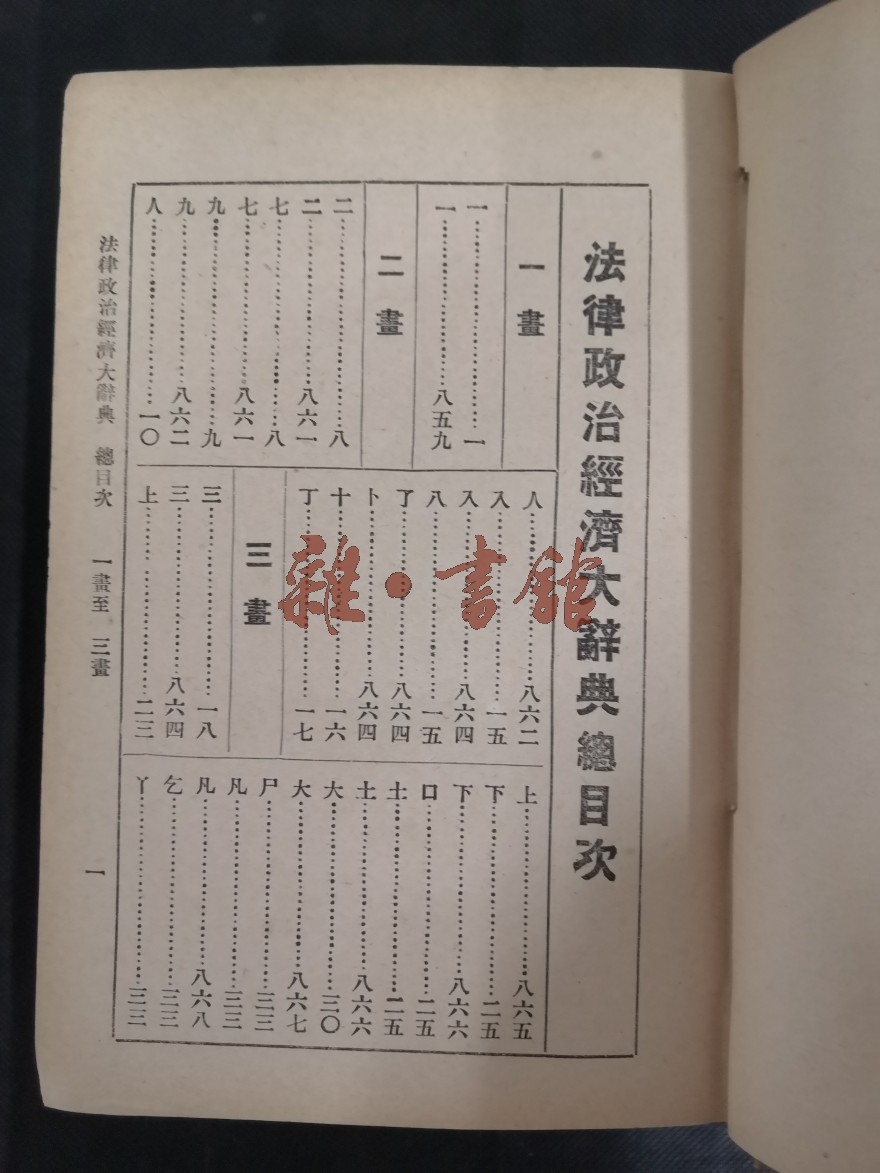 法律政治經濟大辭典總目次
一畫
一……一
一……八五九
二畫
二……八
二……八六一
七……八
七……八六一
九……九
九……八六二
人……一〇
人……八六二
入……一五
入……八六四
八……一五
了……八六四
卜……八六四
十……一六
丁……一七
三畫
三……一八
三……八六四
上……二三
上……八六五
下……二五
下……八六六
口……二五
土……二五
土……八六六
大……三〇
大……八六七
尸……三三
凡……三三
凡……八六八
乞……三三
丫……三三
法律政治經濟大辭典 總目次 一畫至 三畫
一
雜·書館